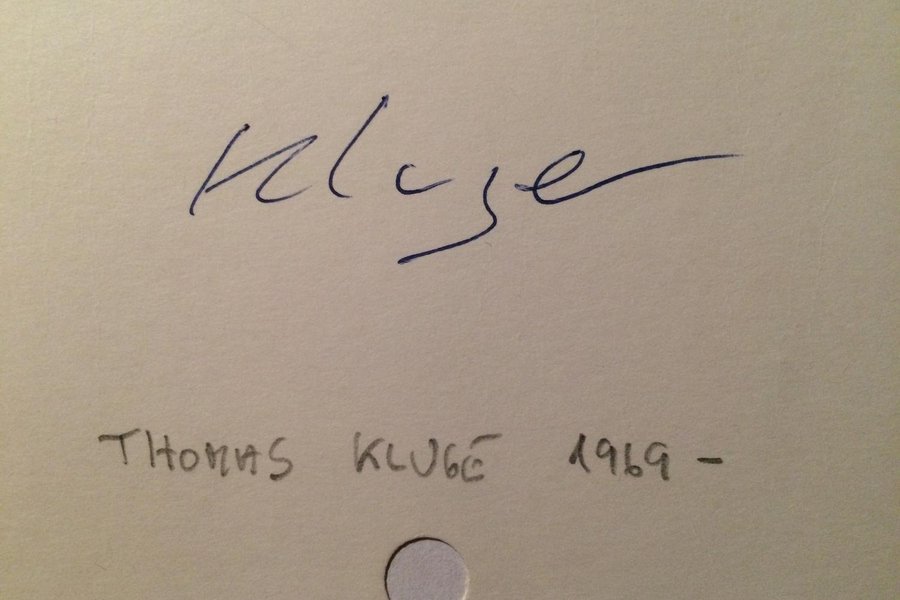 Kluge
THOMAS KLUGE 1969 -